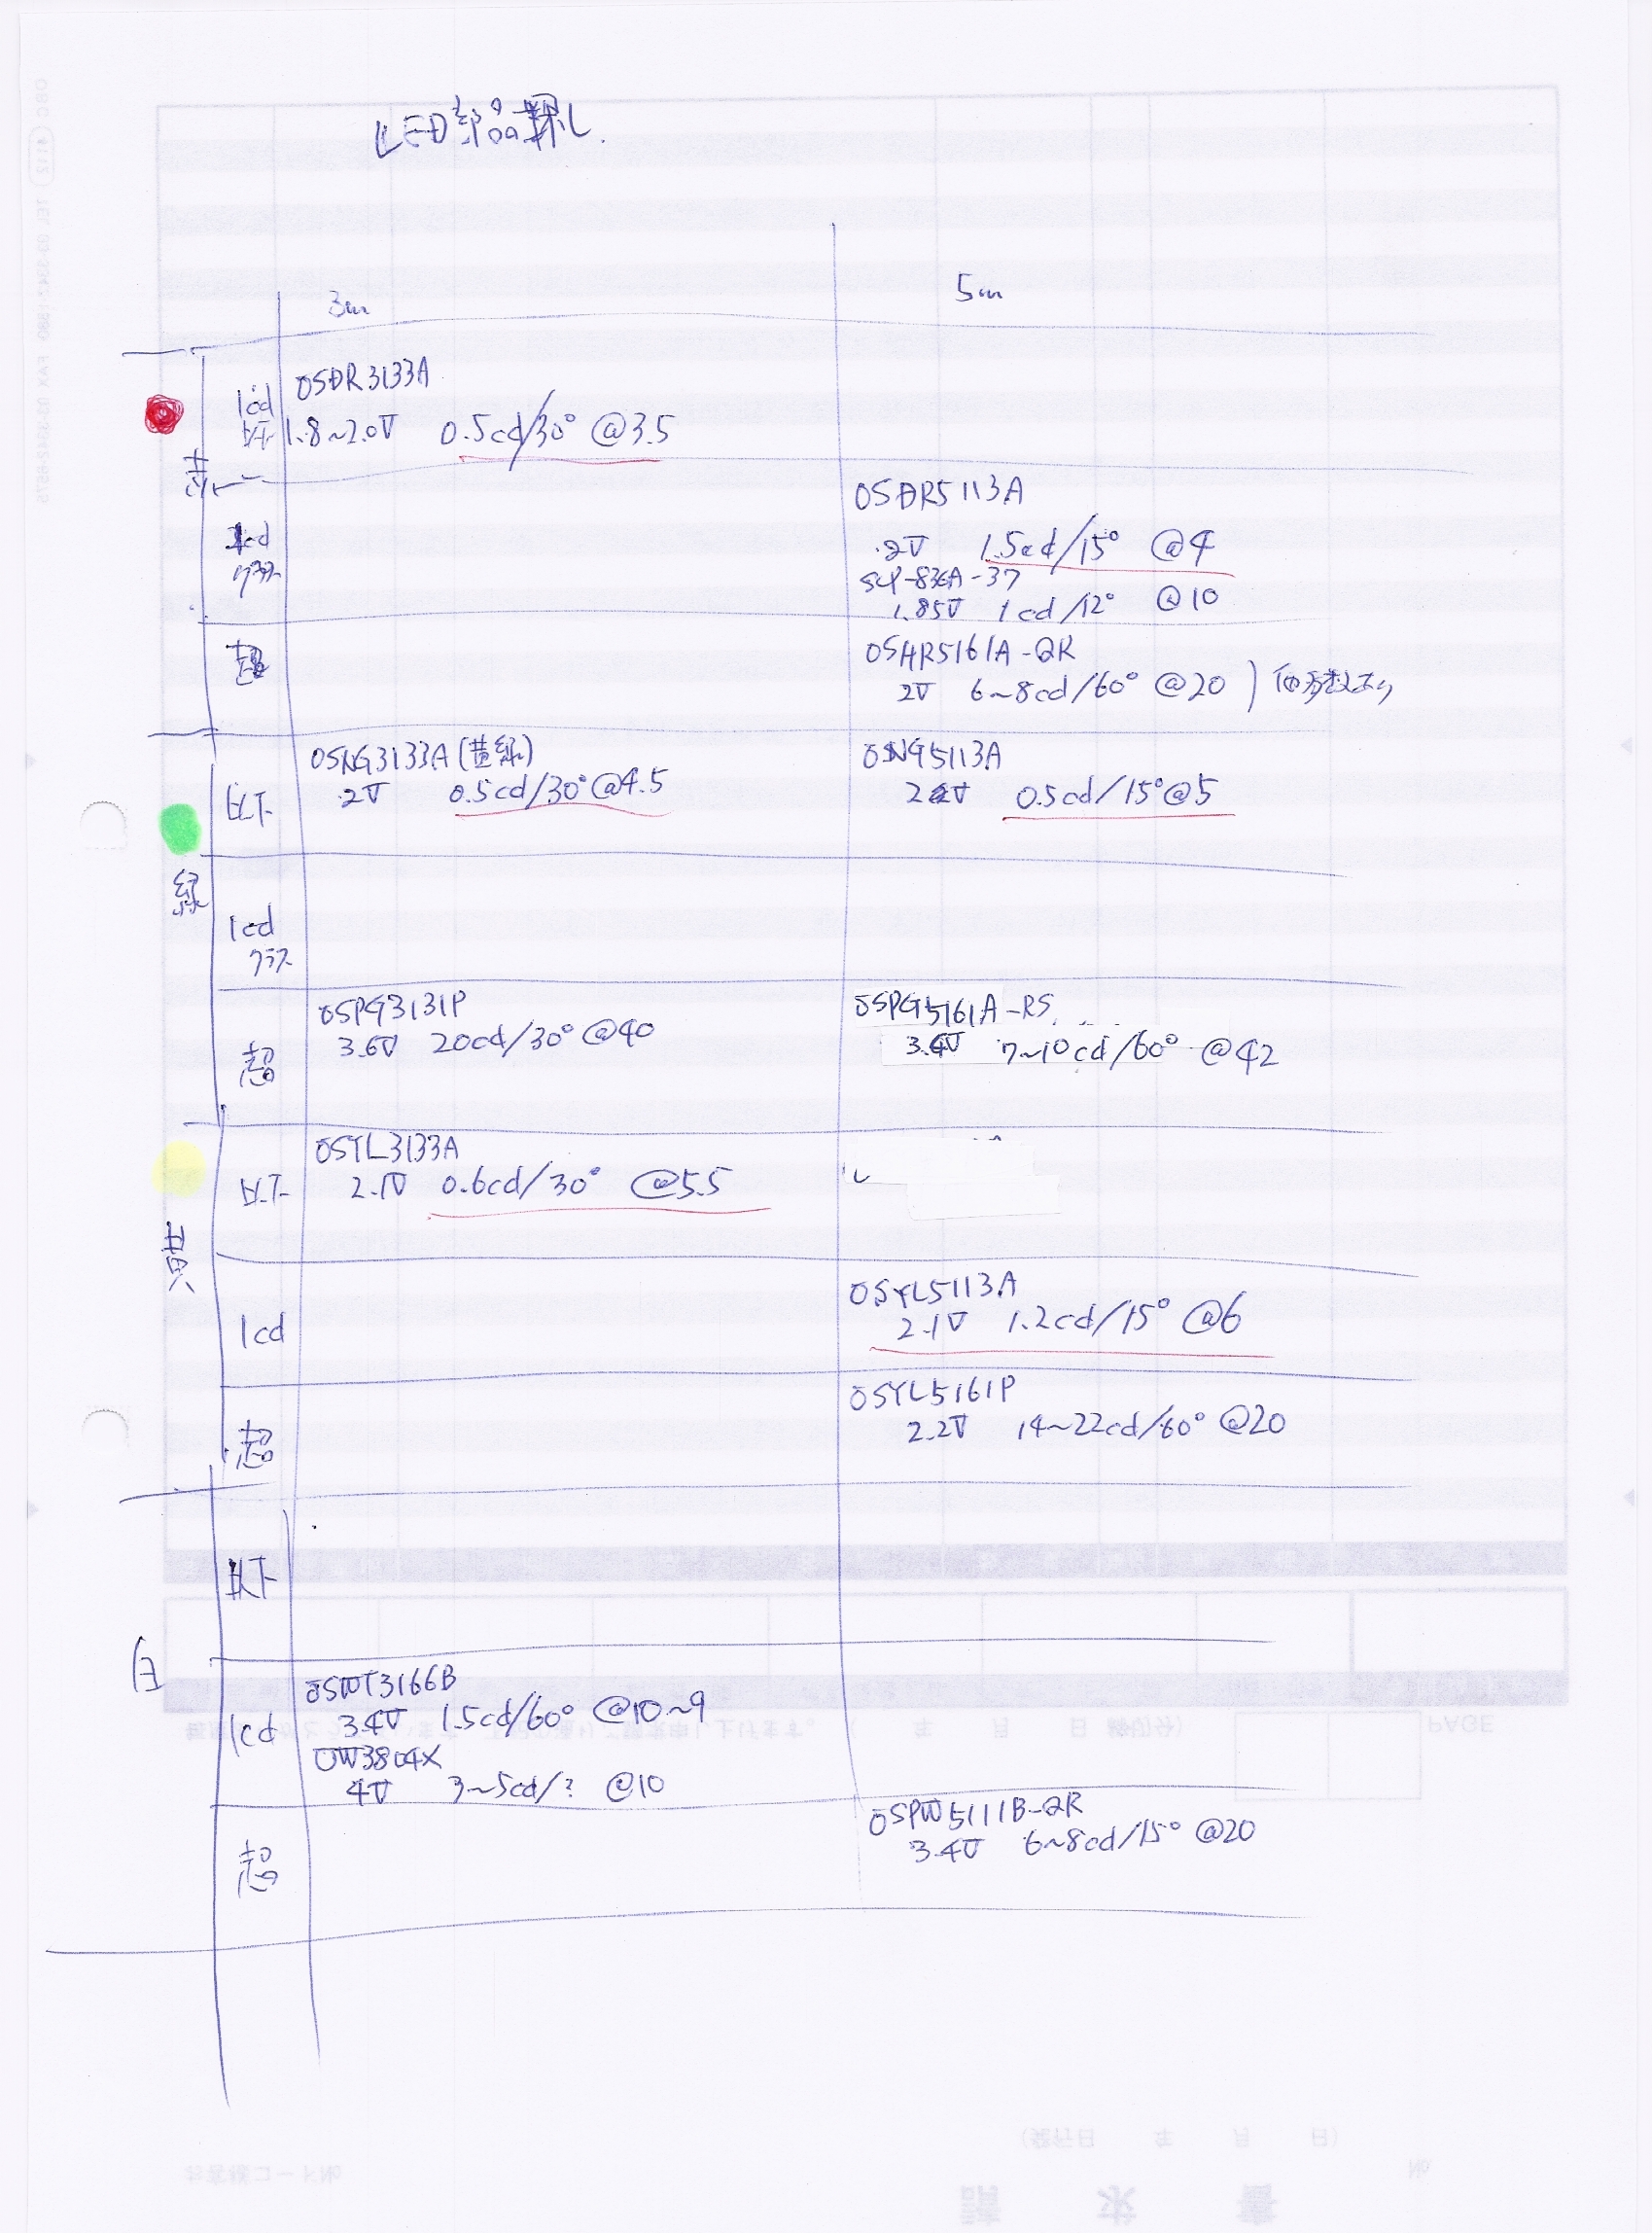 3m
5m
1cd
以下
OSDR3133A
1.8~2.0V 0.5cd/30° @3.5
赤
1cd
クラス
OSDR5113A
2V 1.5cd/15° @4
1.85V 1cd/12° @10
超
OSHR5161A-QR
2V 6~8cd/60° @20
緑
以下
OSNG3133A(黄緑)
2V 0.5cd/30° @4.5
OSNG5113A
0.5cd/15° @5
1cd
クラス
超
OSPG3131P
3.6V 20cd/30° @40
OSPG5161A-RS
3.4V 7~10cd/60° @42
黄
以下
OSYL3133A
2.1V 0.6cd/30° @5.5
1cd
OSYL5113A
2.1V 1.2cd/15° @6
超
OSYL5161P
2.2V 14~22cd/60° @20
白
以下
1cd
OSWT3166B
3.4V 1.5cd/60° @10~9
UW3804X
4V 3~5cd/? @10
超
OSPW5111B-QR
3.4V 6~8cd/15° @20
PAGE
年 月 日 締切分)
(発行日 年 月 日)
お客様コードNo.
No.
請求書